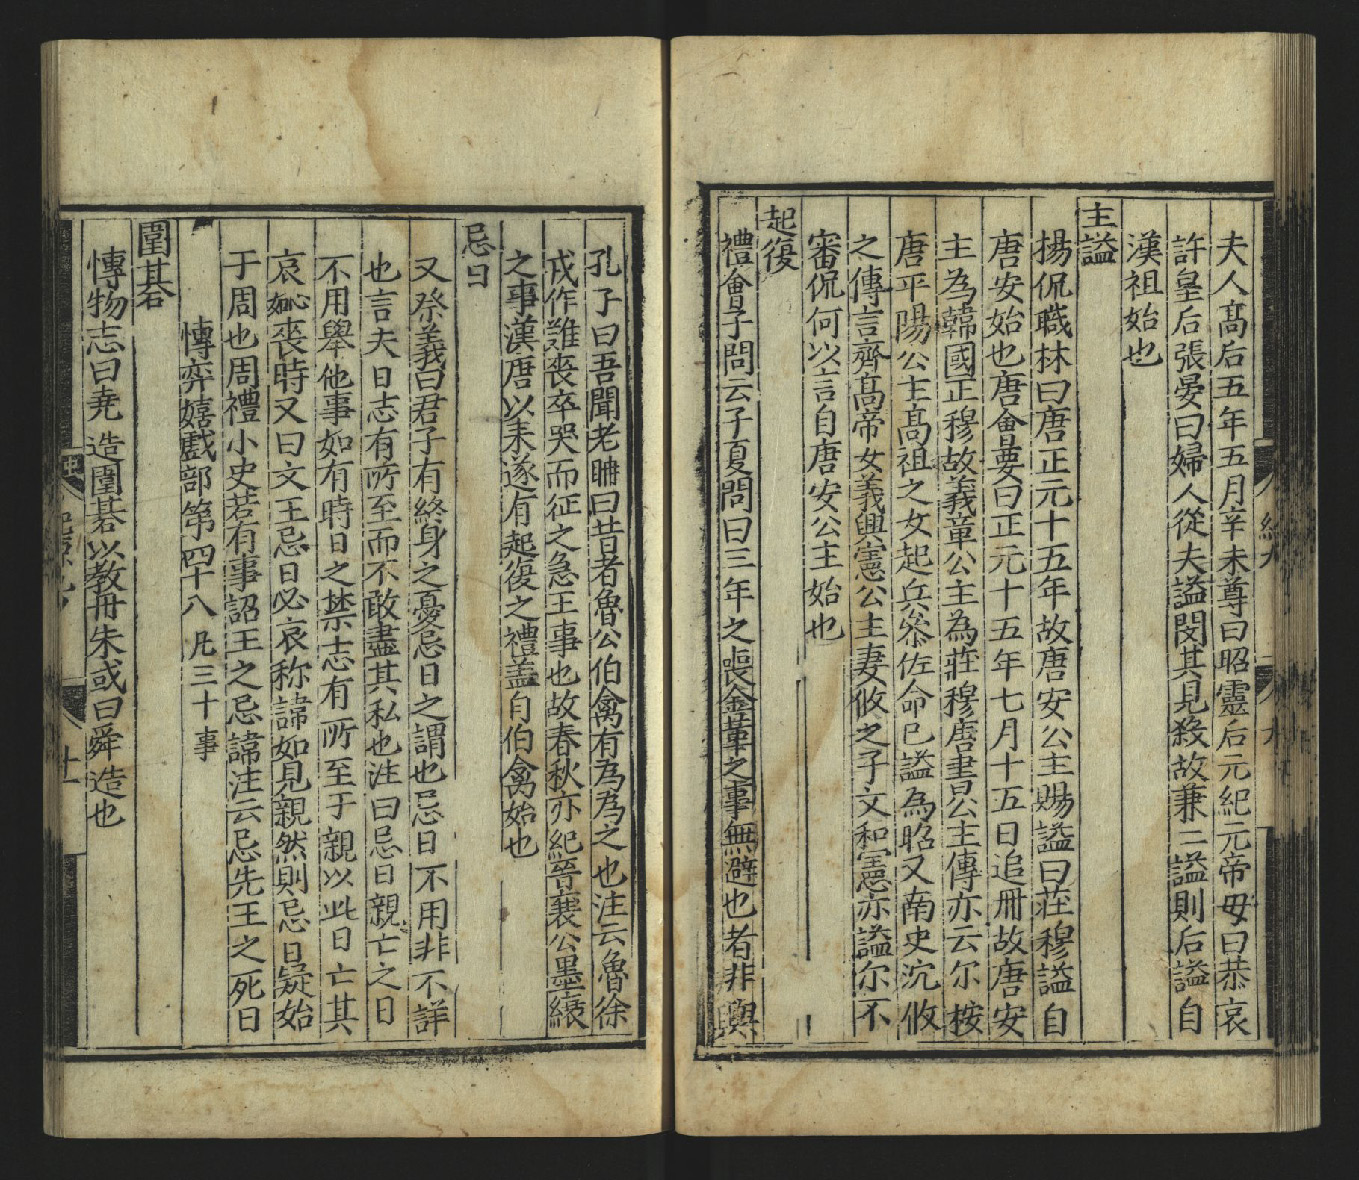 夫人髙后五年五月辛未尊曰昭靈后元紀元帝母曰恭哀
許皇后張晏曰婦人從夫謚閔其見殺故兼二謚則后謚自
漢祖始也
主謚
揚侃職林曰唐正元十五年故唐安公主賜謚曰莊穆謚自
唐安始也唐會要曰正元十五年七月十五日追冊故唐安
主為韓國正穆故義章公主為莊穆唐書公主傳亦云尔桉
唐平陽公主髙祖之女起兵叅佐命已謚為昭又南史沈攸
之傳言齊髙帝女義興憲公主妻攸之子文和憲亦謚尔不
審侃何以言自唐安公主始也
起復
禮會子問云子夏問曰三年之喪金革之事無避也者非與
孔子曰吾聞老聃曰昔者魯公伯禽有為為之也注云魯徐
戎作難喪卒哭而征之急王事也故春秋亦紀晉襄公墨縗
之事漢唐以来遂有起復之禮盖自伯禽始也
忌日
又祭義曰君子有終身之憂忌日之謂也忌日不用非不詳
也言夫日志有所至而不敢盡其私也注曰忌日親亡之日
不用舉他事如有時日之禁志有所至于親以此日亡其
哀如喪時又曰文王忌日必哀称諱如見親然則忌日疑始
于周也周禮小史若有事詔王之忌諱注云忌先王之死日
愽弈嬉戲部第四十八 凡三十事
圍碁
愽物志曰堯造圍碁以教丹朱或曰舜造也